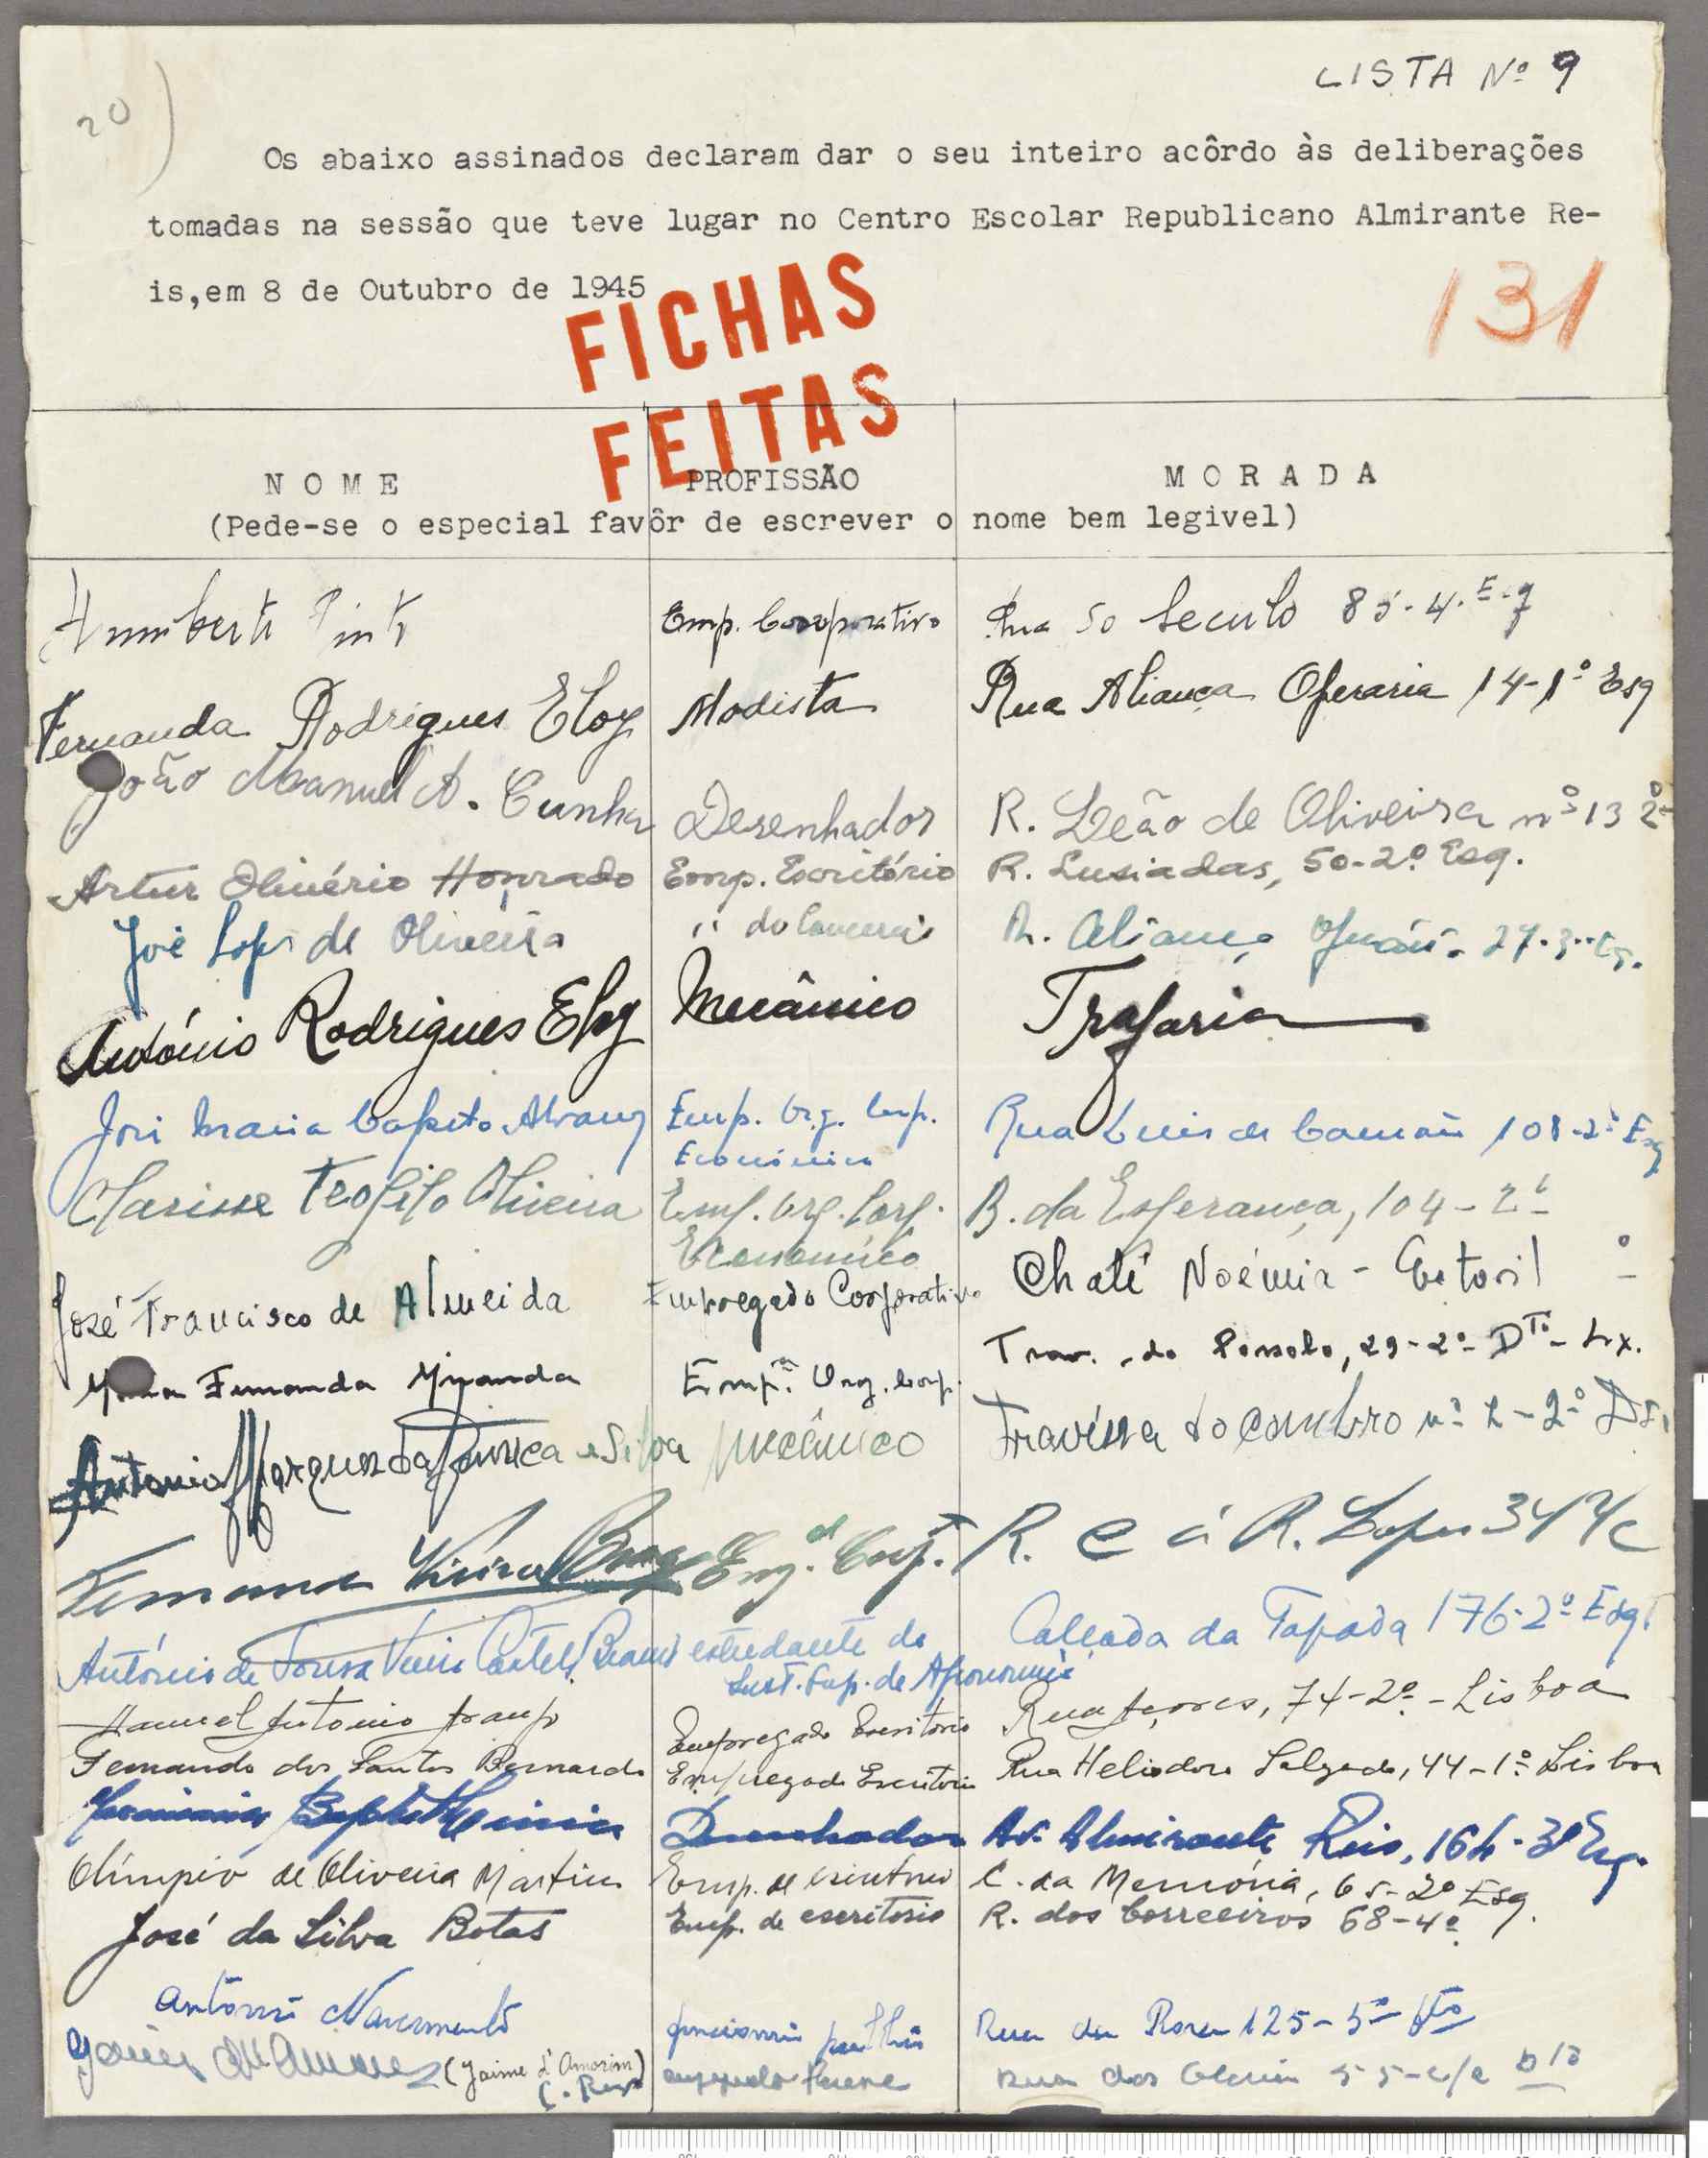 LISTA Nº 9
20)
Os abaixo assinados declaram dar o seu inteiro acôrdo às deliberações
tomadas na sessão que teve lugar no Centro Escolar Republicano Almirante Re-
is,em 8 de Outubro de 1945
131
FICHAS
FEITAS
NOME PROFISSÃO MORADA
(Pede-se o especial favôr de escrever o nome bem legivel)
Humberto Pinto Emp. Cooperativo Rua Do Seculo 85-4.º E.q
Fernanda Rodrigues Eloy Modista Rua Aliança Operaria 14-1º Esq
João Manuel A. Cunha Desenhador R. Leão de Oliveira nº 13 2º
Artur Olivério Honrado Emp. Escritório R. Lusiadas, 50-2º Esq.
José Lopes de Oliveira " do Comercio R. Aliança 27-3º
António Rodrigues Eloy Mecânico Trafaria
José Maria Alvarez Emp. Org. Corp. Rua Luis de Camões 108-2º Esq
Económico
Clarisse Teofilo Oliveira Emp. Org. Corp. R. da Esperança, 104-2º
Económico
José Francisco de Almeida Empregado Corporativo Chalé Noémia - Estoril
Maria Fernanda Miranda Emp.ª Org. Corp. Trav. do Possolo, 29-2º Dto - Lx.
Antonio Marques da Fonseca e Silva Mecânico Travessa do Combro nº 2-2º
Fernando Vieira Braga Corp. R. C á R. Lopes
António de Sousa Castelo Branco estudante do Calçada da Tapada 176-2º Esq.
Inst. Sup. de Agronomia
Manuel Antonio Araujo Empregado Escritorio Rua Açores, 74-2º - Lisboa
Fernando dos Santos Bernardo Empregado Escritorio Rua Heliodoro Salgado, 44-1º Lisboa
Desenhador Av. Almirante Reis, 164-3º Esq.
Olímpio de Oliveira Martins Emp. de escritorio C. da Memória, 65-2º Esq.
José da Silva Botas Emp. de escritorio R. dos Correeiros 68-4º
António Nascimento Rua da Rosa 125-5º Dto
(Jaime d'Amorim Rua das